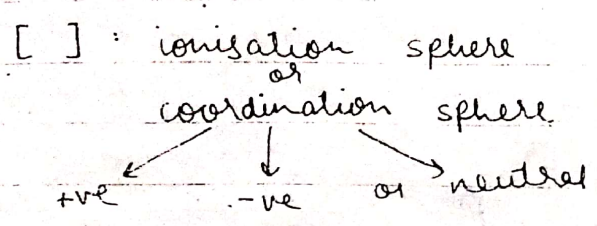 [ ] : ionisation sphere
or
coordination sphere
+ve -ve or neutral